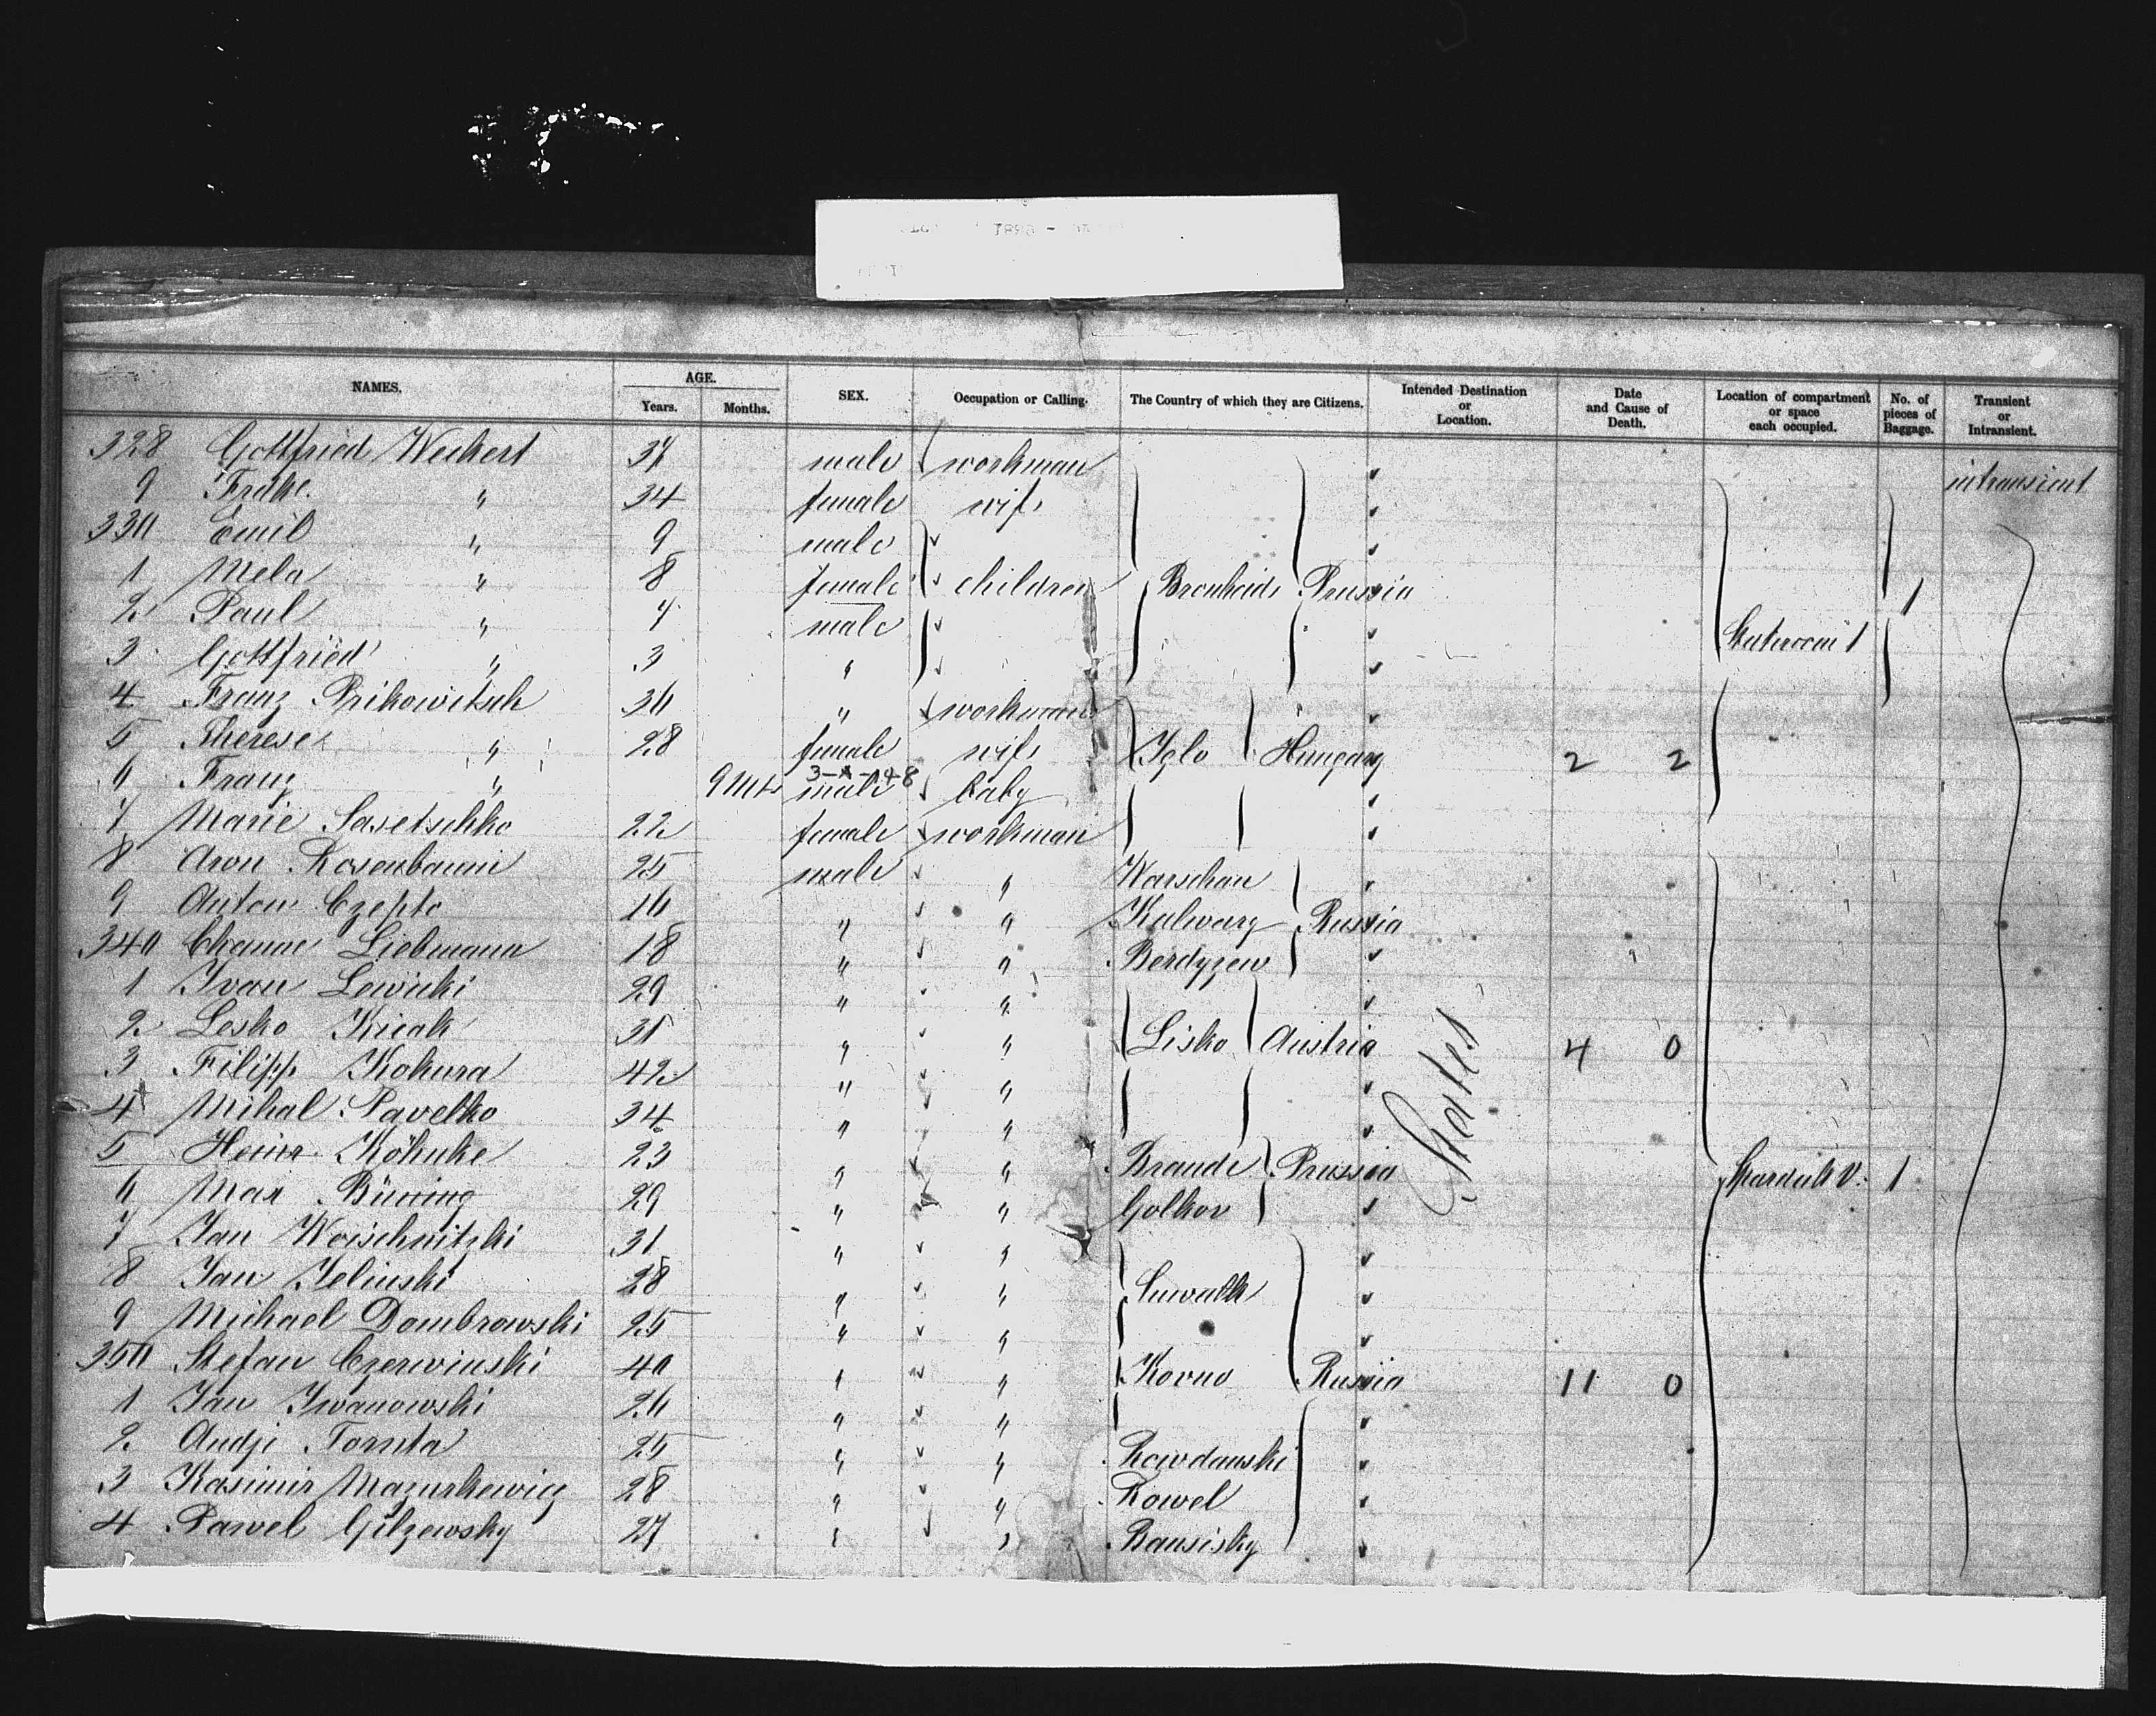 NAMES. AGE. Years. Months. SEX. Occupation or Calling. The Country of which they are Citizens. Intended Destination or Location. Date and Cause of Death. Location of compartment or space each occupied. No. of pieces of Baggage. Transient or Intransient.
328 Gottfried Weckert 37 male workman intransient
9 " 34 female wife
330 Emil " 9 male
1 Mela " 8 female children Prussia
2 Paul " 4 male 1
3 Gottfried " 3 "
4 Franz Prikowitsch 36 " workman
5 Therese " 28 female wife Iglo Hungary 2 2
6 Franz " 9 Mts male baby
7 Marie Sasetschko 22 female workman
8 Aron Rosenbaum 25 male " Warschau
9 Anton Czepto 16 " " Kalwary Russia
340 Liebmann 18 " " Berdyzew
1 Ivan Lewicki 29 " "
2 Lesko Kicak 31 " " Lisko Austria 4 0
3 Filipp Kokura 42 " "
4 Mihal Pavelko 34 " "
States
5 Heinr. Köhnke 23 " " Brande Prussia 1
6 Max Büning 29 " "
7 Jan Woischnitzki 31 " "
8 Jan Jelinski 28 " " Suwalk
9 Michael Dombrowski 25 " "
350 Stefan Czerwinski 40 " " Kovno Russia 11 0
1 Jan Iwanowski 26 " "
2 25 " "
3 Kasimir Mazurkewicz 28 " "
4 Pawel Gilzewsky 27 " "